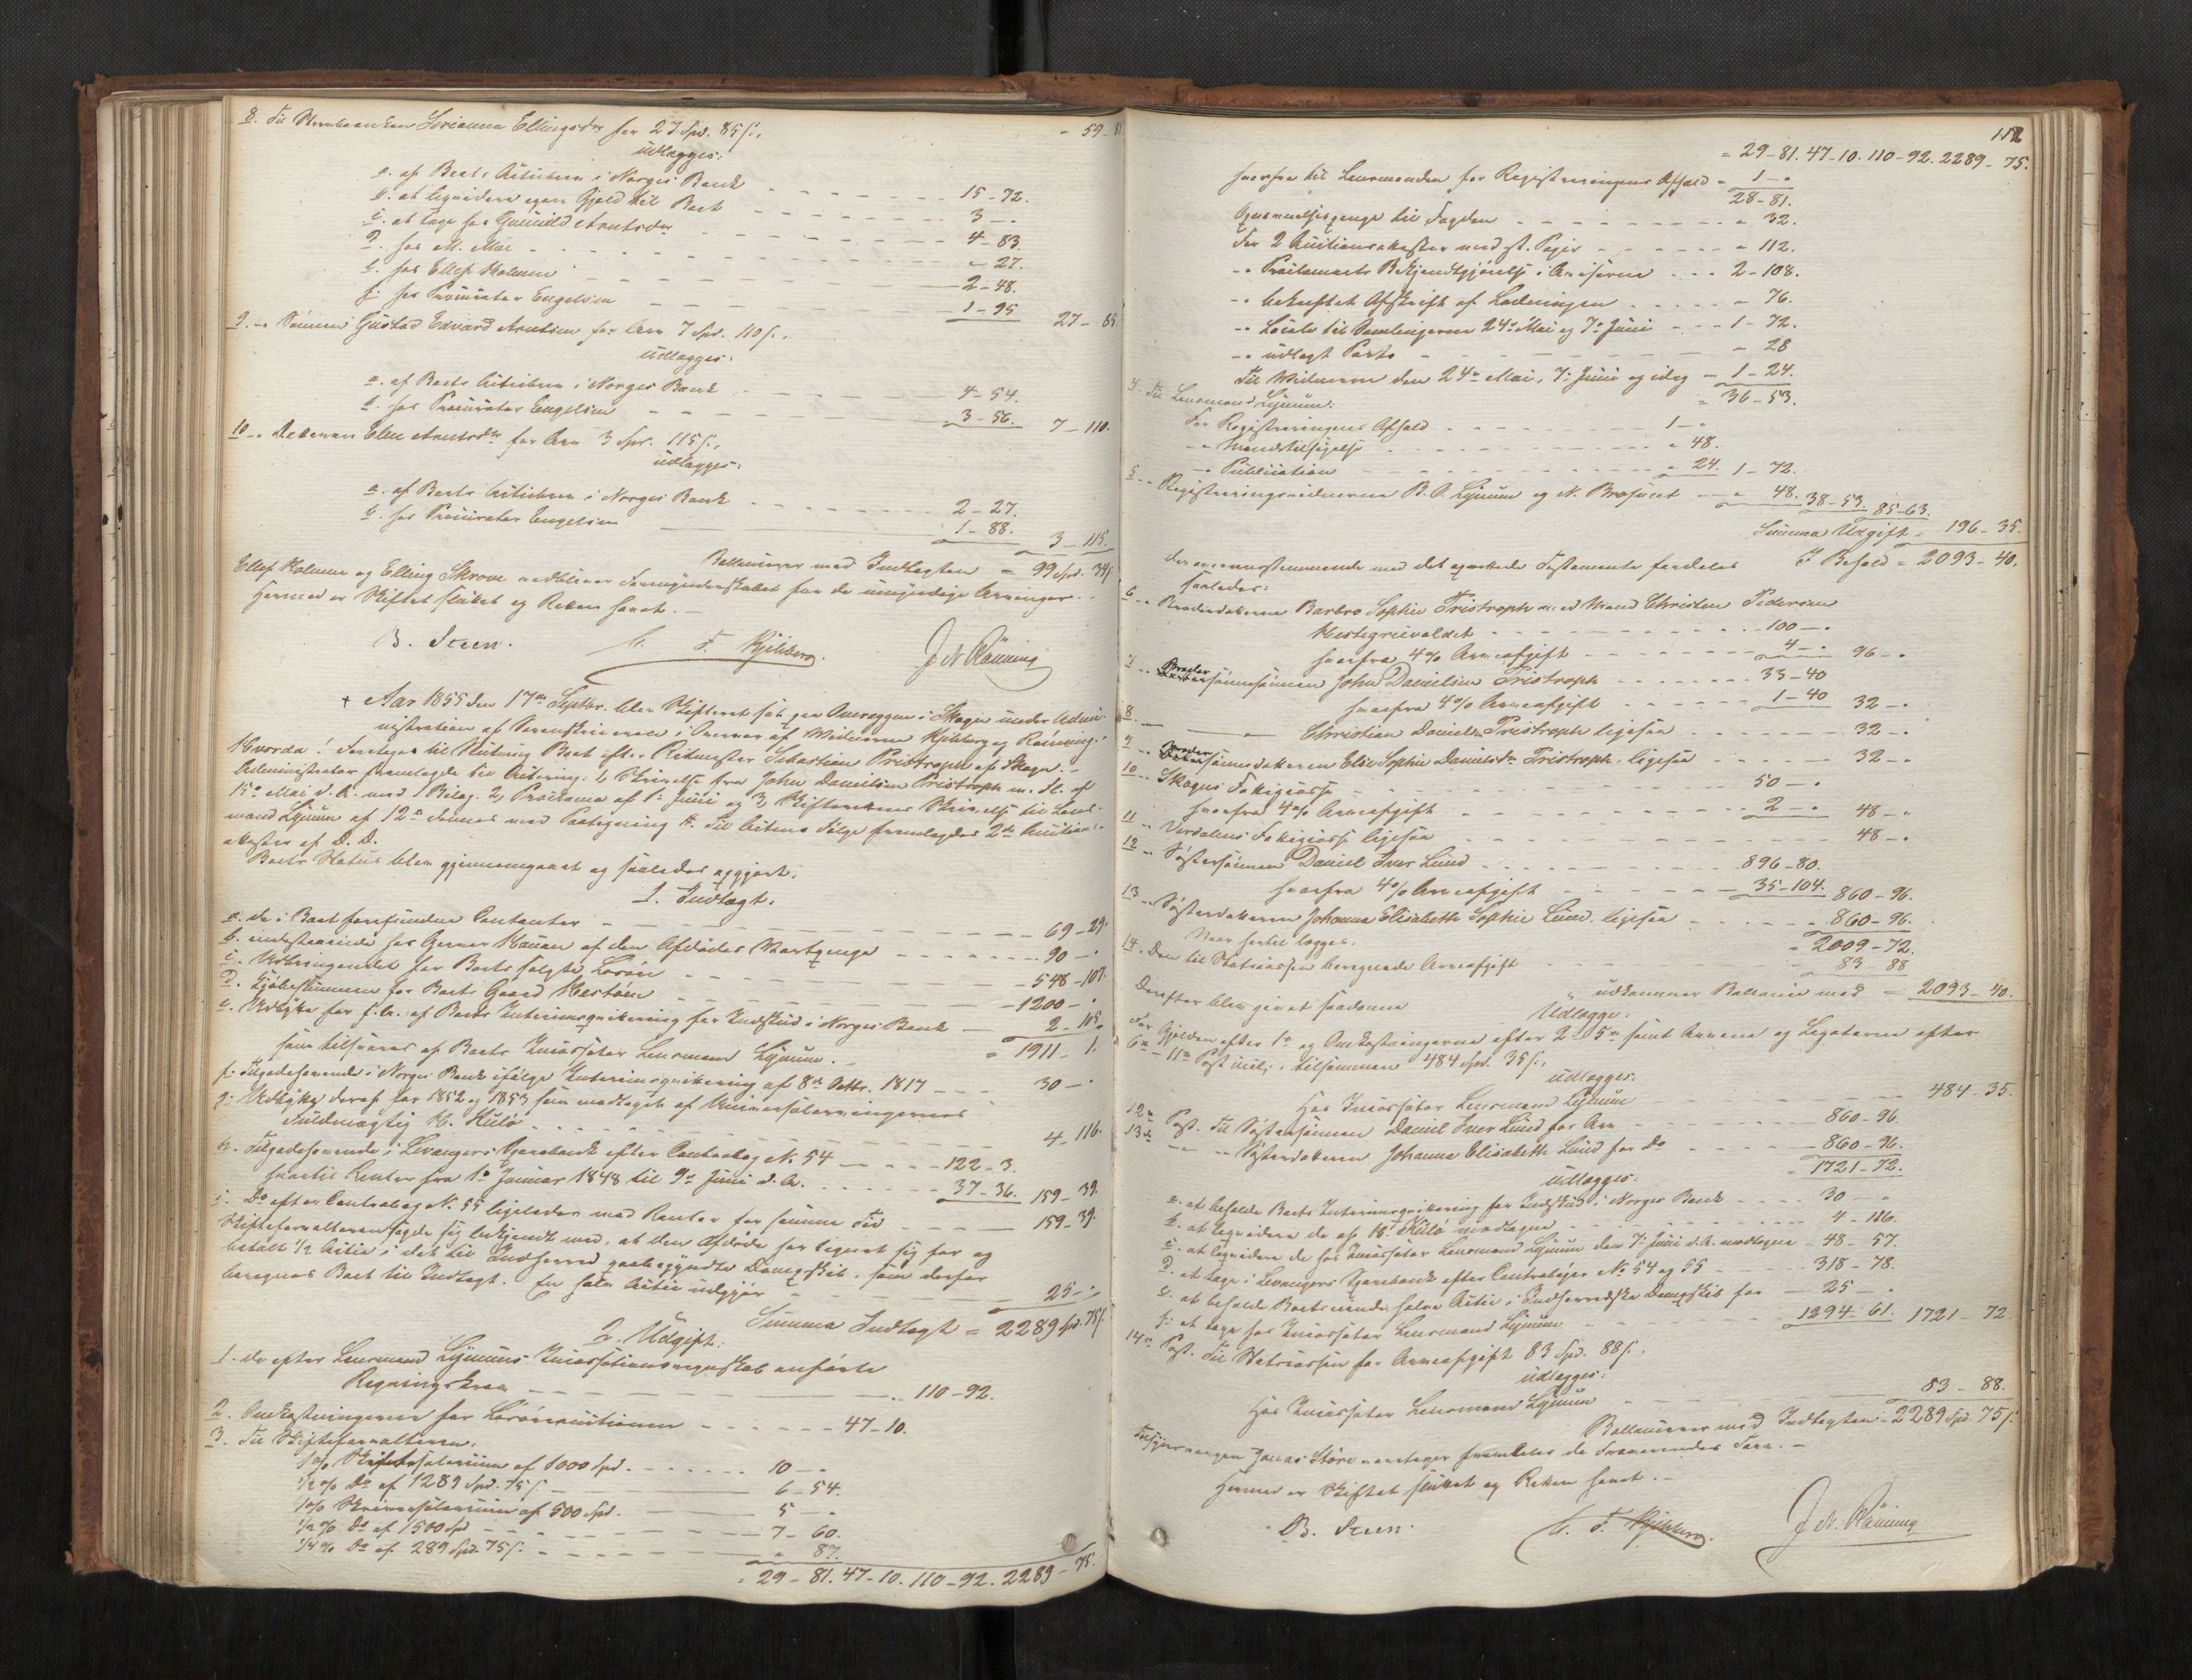 8. Til Stervboenken Sirianna Ellingsdr for 27 Spd. 85 s.,
- 59 - 81
udlægges:
a. af Boets Actiebrev i Norges Bank - - - - 15 - 72.
b. at liqvidere egen Gjeld til Boet - - - - 3 - "
c. at tage hos Gunild Arntsdr - - - - 4 - 83.
d. hos M. Moe - - - - " - 27.
e. hos Ellef Holmen - - - - 2 - 48.
f. hos Procurator Engelsen - - - - 1 - 95 27 - 85
9. -" Sønnen Gustav Edvard Arntsen for Arv 7 Spd. 110 s.,
udlægges:
a. af Boets Actiebrev i Norges Bank - - - - 4 - 54.
b. hos Procurator Engelsen - - - - 3 - 56. 7 - 110.
10 -" Datteren Elen Arntsdr for Arv 3 Spd. 115 s.,
udlægges:
a. af Boets Actiebrev i Norges Bank - - - - 2 - 27.
b. hos Procurator Engelsen - - - - 1 - 88. 3 - 115.
Ballancerer med Indtægten = 99 Spd. 34 s
Ellef Holmen og Elling Skrove vedbliver Formynderskabet for de umyndige Arvinger. -
Hermed er Skiftet sluttet og Retten hævet. -
B. Steen. C. F. Kjelberg. J N Rønning
+ Aar 1855 den 17de Septbr. blev Skifteret sat paa Overeggen i Skogn under Admi-
nistration af Sorenskriveren i Overvær af Vidnerne Kjelberg og Rønning. -
Hvorda! Foretoges til Slutning Boet efter Ritmester Sebastian Tristroph af Skogn: -
Administrator fremlagde til Actering: 1, Skrivelse fra John Danielsen Tristroph m. Fl. af
15de Mai d. A. med 1 Bilag. 2, Proclama af 1ste Juni og 3, Skifterettens Skrivelse til Lens-
mand Lynum af 12te samme med Paategning #. Til Actens Følge fremlagdes 2de Auctions-
akster af D. D.
Boets Status blev gjennemgaaet og saaledes opgjort:
1. Indtægt:
a. de i Boet forefundne Contanter - - - - 69 - 29.
b. indestaaende hos Gunner Hauan af den Afdødes Vartpenge - - - - 90 - "
c. Udbringendet for Boets solgte Løsøre - - - - 548 - 107.
d. Kjøbesummen for Boets Gaard Hestøen - - - - 1200 - "
e. Udbytte for f. A. af Boets Interimsqvitering for Indskud i Norges Bank - - 2 - 105.
som tilsvares af Boets Incassator Lensmand Lynum. - = 1911 - 1.
f. Tilgodehavende i Norges Bank ifølge Interimsqvitering af 8de Octbr. 1817 - - - 30 - "
g. Udbytte deraf for 1852 og 1853 som modtaget af Universalarvingernes
Fuldmægtig H. Hulø - - - - 4 - 116.
h. Tilgodehavende i Levangers Sparebank efter Contrabog No 54 - - - - 122 - 3.
hvortil Renter fra 1ste Januar 1848 til 9de Juni d. A. - - - - 37 - 36. 159 - 39.
i. Do efter Contrabog No 55 ligeledes med Renter for samme Tid - - - - 159 - 39.
Skifteforvalteren sagde sig bekjendt med, at den Afdøde har tegnet sig for og
betalt 1/2 Actie i det til Indherred paabegyndte Dampskib, som derfor
beregnes Boet til Indtægt. En halv Actie udgjør - - - - 25 - "
Summa Indtægt = 2289 Spd. 75 s
2. Udgift:
1. de efter Lensmand Lynums Incassationsregnskab anførte
Regningskrav - - - - 110 - 92.
2. Omkostningerne for Løsøreauctionen - - - - 47 - 10.
3. Til Skifteforvalteren:
1% Skiftesalarium af 1000 Spd. - - - - 10 - "
1/2% Do af 1289 Spd. 75 s - - - - 6 - 54.
1% Skriversalarium af 500 Spd. - - - - 5 - "
1/2% Do af 1500 Spd - - - - 7 - 60.
1/4% Do af 289 Spd. 75 s. - - - - " 87.
= 29 - 81. 47 - 10. 110 - 92. 2289 - 75.
112
= 29 - 81. 47 - 10. 110 - 92. 2289 - 75.
hvorfra til Lensmanden for Registreringens Afhold - 1 - "
28 - 81.
Opvarmelsespenge til Fogden - - - - " 32.
For 2 Auctionsakster med st. Papir - - - - " 112.
-" Proclamaets Bekjendtgjørelse i Aviserne - - - 2 - 108.
-" bekræftet Afskrift af Ladningen - - - - " 76.
-" Locale til Samlingerne 24de Mai og 7de Juni - - - 1 - 72.
-" udlagt Porto - - - - " 28
Til Vidnerne den 24de Mai, 7de Juni og idag - 1 - 24.
= 36 - 53.
4. Til Lensmand Lynum:
For Registreringens Afhold - - - - 1 - "
-" Mandstilsigelse - - - - " 48.
-" Publication - - - - " 24. 1 - 72.
5 -" Registreringsvidnerne B. O. Lynum og N. Brofuret - - " 48. 38 - 53. 85 - 63.
Summa Udgift - 196 - 35.
I Behold = 2093 - 40.
der overensstemmende med det oprettede Testamente fordeles
saaledes:
6 -" Broderdatteren Barbro Sophie Tristroph med Mand Christen Pedersen
Hestegreivaldet - - - - 100 - "
hvorfra 4% Arveafgift - - - - 4 - " 96 - "
7 -" Broder sønnesønnen John Danielsen Tristroph - - - - 33 - 40
hvorfra 4% Arveafgift - - - - 1 - 40 32 - "
8. -" Christian Daniels. Tristroph ligesaa - - - - 32 - "
9 -" Broder sønnedatteren Elise Sophie Danielsdr Tristroph, ligesaa - - - - 32 - "
10 -" Skogns Fattigcasse - - - - 50 - "
hvorfra 4% Arveafgift - - - - 2 - " 48 - "
11 -" Verdalens Fattigcasse ligesaa - - - - 48 - "
12 -" Søstersønnen Daniel Iver Lund - - - - 896 - 80.
hvorfra 4% Arveafgift - - - - 35 - 104. 860 - 96.
13 -" Søsterdatteren Johanna Elisabeth Sophie Lund ligesaa - - - - 860 - 96.
= 2009 - 72.
Naar hertil lægges:
14. Den til Statscassen beregnede Arveafgift - - - - 83 - 88
udkommer Ballance med = 2093 - 40.
Derefter blev gjort saadanne Udlægge:
For Gjelden efter 1ste og Omkostningerne efter 2 - 5te samt Arvene og Legaterne efter
6te - 11te Post incl., tilsammen 484 Spd. 35 s.,
udlægges:
Hos Incassator Lensmand Lynum - - - - 484 - 35.
12te Post. Til Søstersønnen Daniel Iver Lund for Arv - - - - 860 - 96
13de -" -" Søsterdatteren Johanna Elisabeth Lund for Do - - - - 860 - 96.
= 1721 - 72.
udlægges:
a. at beholde Boets Interimsqvitering for Indskud i Norges Bank - - - - 30 - "
b. at liqvidere de af H. Hulø modtagne - - - - 4 - 116.
c. at liqvidere de hos Incassator Lensmand Lynum den 7de Juni d. A. modtagne - 48 - 57.
d. at tage i Levangers Sparebank efter Contrabøger No 54 og 55 - - - - 318 - 78.
e. at beholde Boets iende halve Actie i Indherredske Dampskib for - 25 - "
f. at tage hos Incassator Lensmand Lynum - - - - 1294 - 61. 1721 - 72
14de Post. Til Statscassen for Arveafgift 83 Spd. 88 s.
udlægges:
Hos Incassator Lensmand Lynum - - - - 83 - 88.
Ballancerer med Indtægten = 2289 Spd. 75 s.
Jonas Støre fremdeles de Fraværendes Tarv. -
Hermed er Skiftet sluttet og Retten hævet. -
B. Steen. C. F. Kjelberg. J. N. Rønning